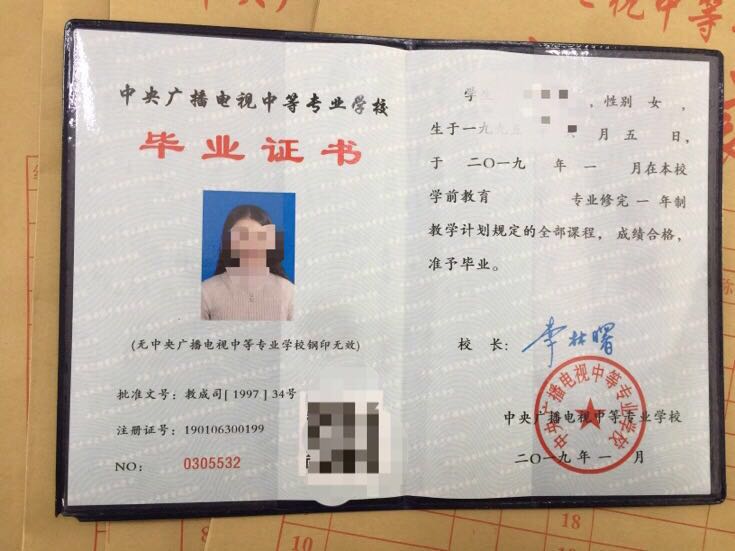 中央广播电视中等专业学校
毕业证书
(无中央广播电视中等专业学校钢印无效)
批准文号：教成司[1997]34号
注册证号：190106300199
NO： 0305532
学生 ，性别 女，
生于一九九五 月五 日，
于 二〇一九 年 一 月在本校
学前教育 专业修完 一 年制
教学计划规定的全部课程，成绩合格，
准予毕业。
校 长： 李林曙
中央广播电视中等专业学校
中央广播电视中等专业学校
二〇一九 年 一 月
视中等
10
18